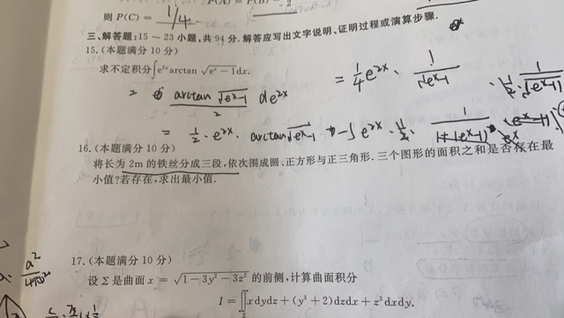 则 P(C) = 1/4
三、解答题:15～23小题,共94分.解答应写出文字说明、证明过程或演算步骤.
15.(本题满分10分)
求不定积分∫e²ˣarctan √(eˣ-1)dx.
= 1/4 e²ˣ · 1/√(eˣ-1) · 1/2 · 1/√(eˣ-1)
= arctan√(eˣ-1)/2 de²ˣ
= 1/2 · e²ˣ · arctan√(eˣ-1) - ∫e²ˣ · 1/2 · 1/(1+(eˣ-1))
16.(本题满分10分)
将长为2m的铁丝分成三段,依次围成圆、正方形与正三角形.三个图形的面积之和是否存在最
小值?若存在,求出最小值.
17.(本题满分10分)
设Σ是曲面 x = √(1-3y²-3z²) 的前侧,计算曲面积分
I = ∬xdydz + (y³+2)dzdx + z³dxdy.